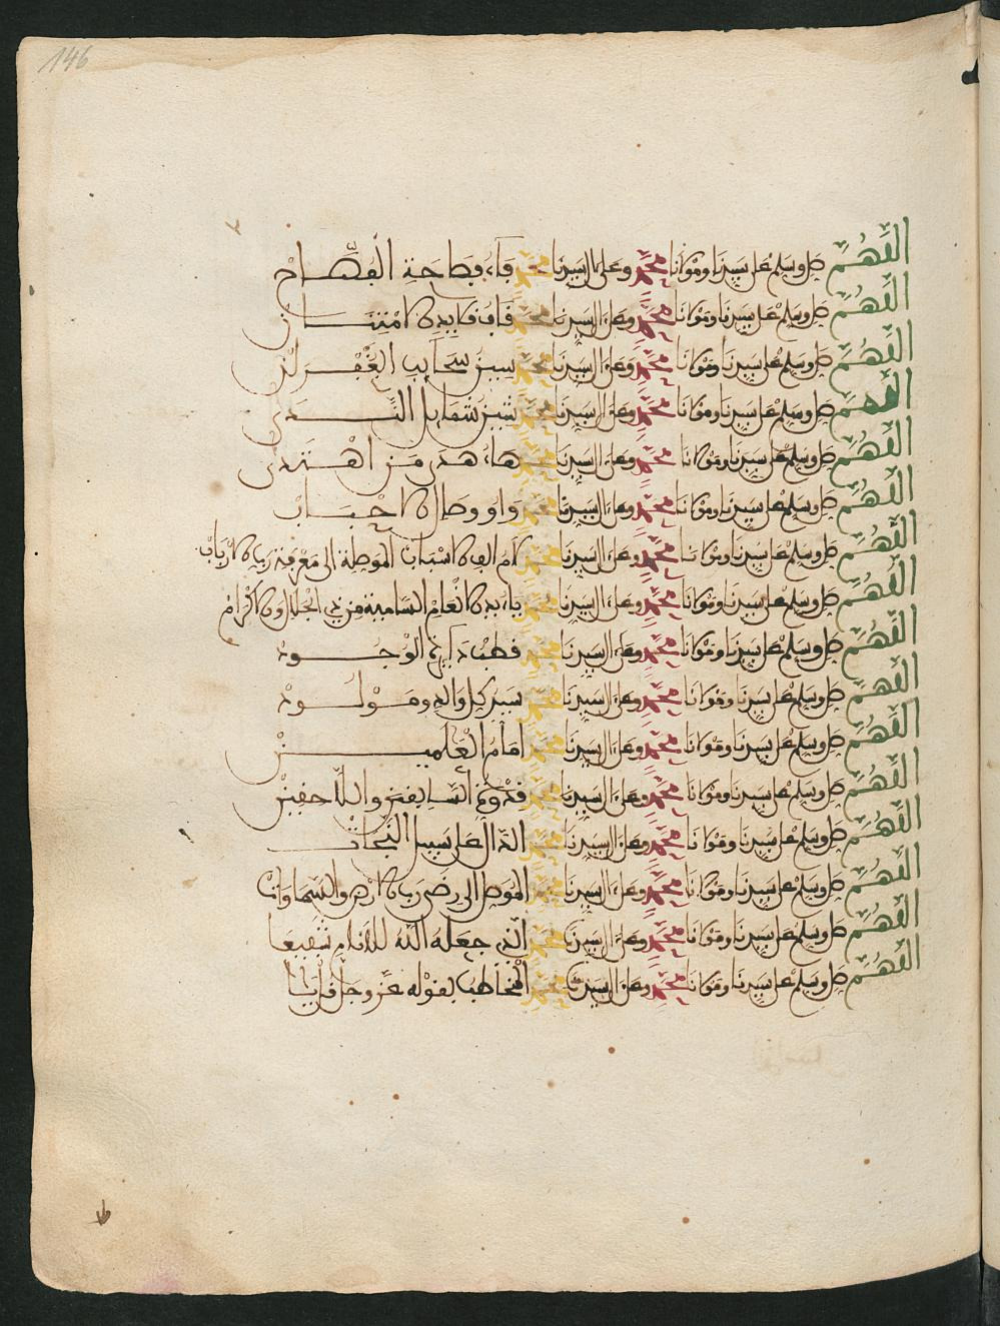 146
اللهم صل وسلم على سيدنا ومولانا محمد وعلى ال سيدنا محمد فاء فصاحة الفصاح
اللهم صل وسلم على سيدنا ومولانا محمد وعلى ال سيدنا محمد قاف قايد الامتنان
اللهم صل وسلم على سيدنا ومولانا محمد وعلى ال سيدنا محمد سين سحايب الغفران
اللهم صل وسلم على سيدنا ومولانا محمد وعلى ال سيدنا محمد شين شمايل الندى
اللهم صل وسلم على سيدنا ومولانا محمد وعلى ال سيدنا محمد هاء هدى من اهتدى
اللهم صل وسلم على سيدنا ومولانا محمد وعلى ال سيدنا محمد واو وصال الاحباب
اللهم صل وسلم على سيدنا ومولانا محمد وعلى ال سيدنا محمد لام الف الاسباب الموصلة الى معرفة رب الارباب
اللهم صل وسلم على سيدنا ومولانا محمد وعلى ال سيدنا محمد ياء يد الانعام السامية من ذي الجلال والاكرام
اللهم صل وسلم على سيدنا ومولانا محمد وعلى ال سيدنا محمد قطب دايرة الوجود
اللهم صل وسلم على سيدنا ومولانا محمد وعلى ال سيدنا محمد سيد كل والد ومولود
اللهم صل وسلم على سيدنا ومولانا محمد وعلى ال سيدنا محمد امام العلمين
اللهم صل وسلم على سيدنا ومولانا محمد وعلى ال سيدنا محمد قدوة السابقين واللاحقين
اللهم صل وسلم على سيدنا ومولانا محمد وعلى ال سيدنا محمد الدال على سبيل النجات
اللهم صل وسلم على سيدنا ومولانا محمد وعلى ال سيدنا محمد الموصل الى رضى رب الارض والسماوات
اللهم صل وسلم على سيدنا ومولانا محمد وعلى ال سيدنا محمد الذي جعله الله للانام شفيعا
اللهم صل وسلم على سيدنا ومولانا محمد وعلى ال سيدنا محمد المخاطب بقوله عز وجل قل يا